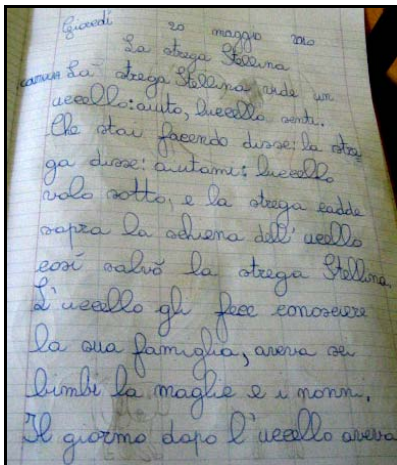 Giovedì 20 maggio 2010
La strega Stellina
La strega Stellina vide un
uccello: aiuto, luccello sentì.
Che stai facendo disse: la stre
ga disse: aiutami: luccello
volo sotto, e la strega cadde
sopra la schiena dell' ucello
così salvò la strega Stellina
L'uccello gli fece conoscere
la sua famiglia, aveva sei
bimbi la moglie e i nonni.
Il giorno dopo l'uccello aveva